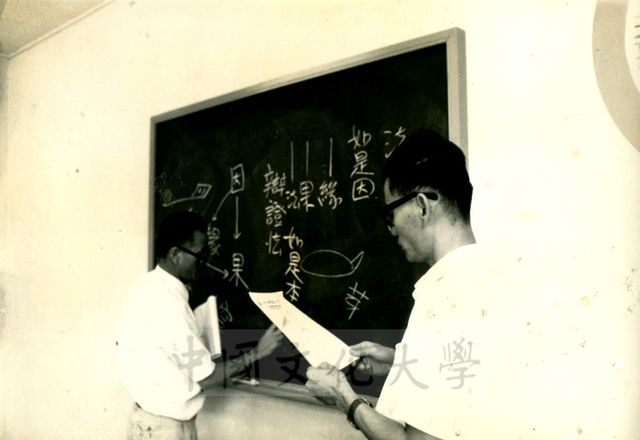 法
如是因
緣
果
法
辯證法
如是本
因
緣
果
中國文化大學